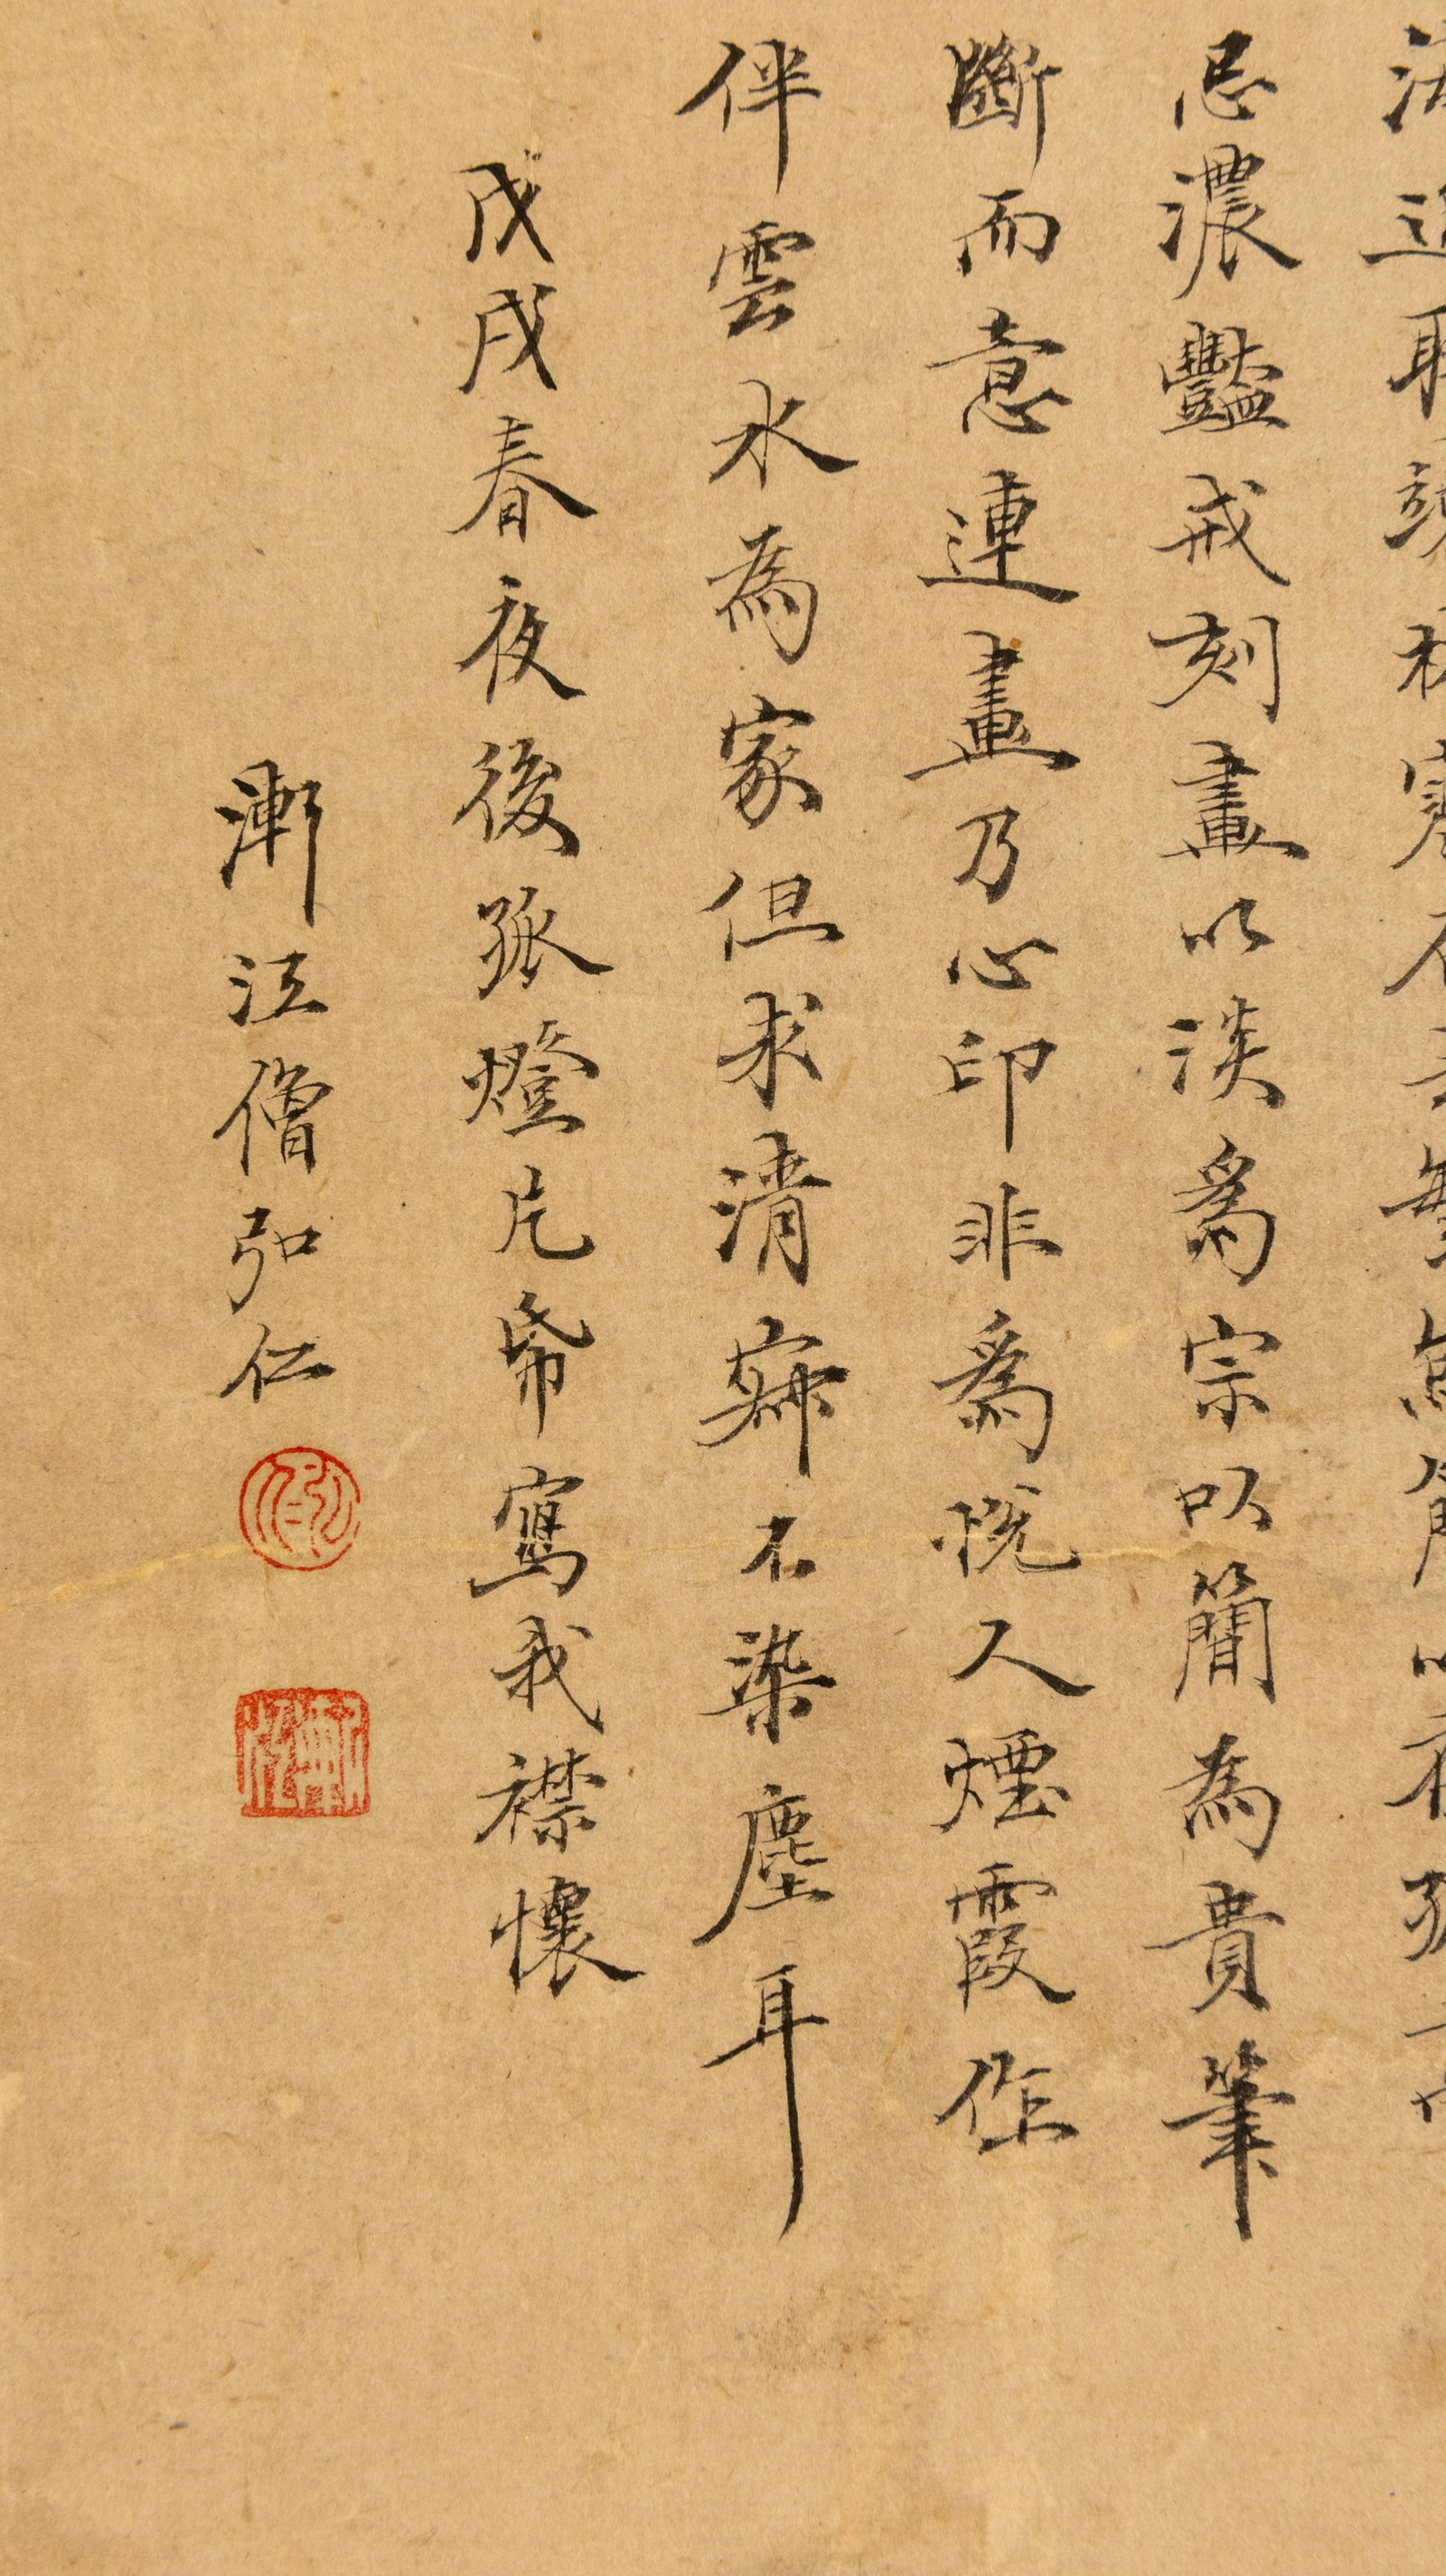 忌濃豔戒刻畫以淡爲宗以簡為貴筆
斷而意連畫乃心印非爲悅人煙霞作
伴雲水為家但求清寂不染塵耳
戊戌春夜後孤燈片帋寫我襟懷
漸江僧弘仁
弘仁
漸江